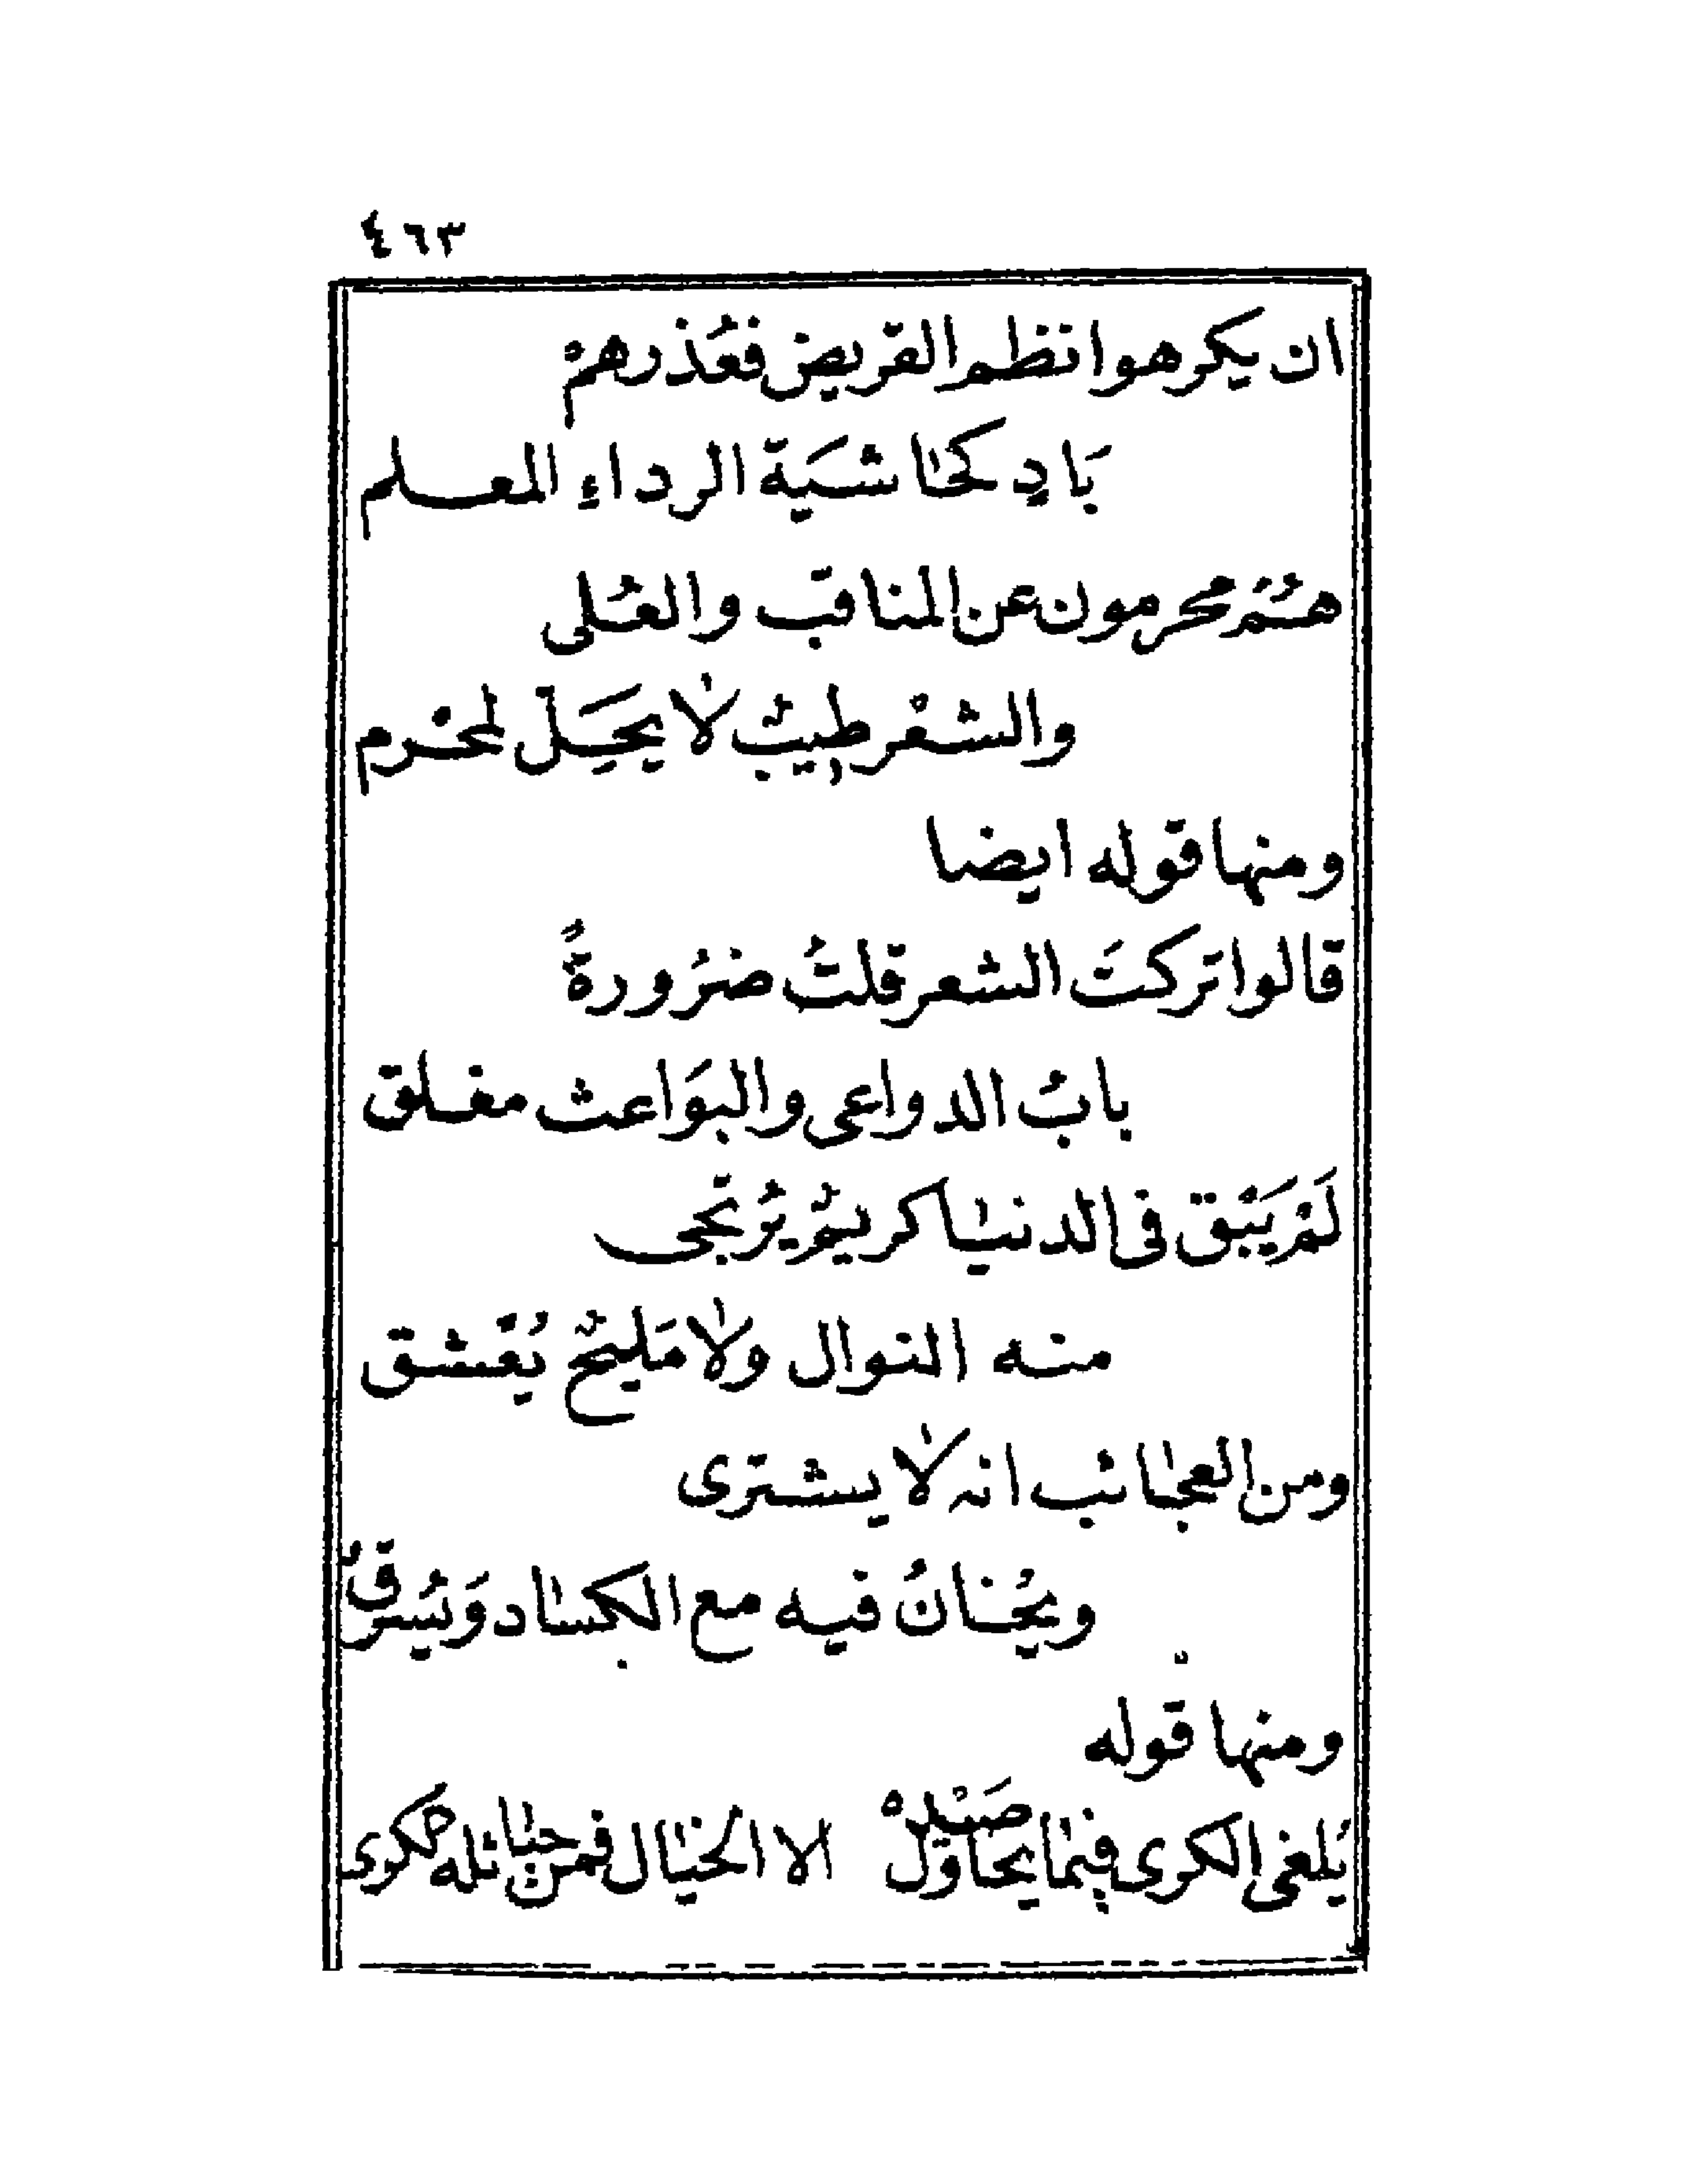 ٤٦٣
ان يكرهوا نظم القريض فعُذرهمْ
بَادٍ كحٰاشيَة الرداءِ المعلم
همُ محرمون عن المناقب والعُلى
والشعْر طِيبٌ لا يحِلّ لمحْرم
ومنها قوله ايضا
قالوا تركتَ الشعر قلتُ ضرُورةً
بابُ الدواعى والبوَاعث مغلق
لَمْ يَبْق فى الدنيٰا كريمٌ يُرْتجى
منه النوال ولا مَليحٌ يُعْشق
ومن العجٰائب انه لا يشترى
ويُخانُ فيه مع الكسٰاد وَيُسرقُ
ومنها قوله
يُلغى الكرى فِيمٰا يحٰاول صَيْدهُ الا الخيٰال فمن حبٰائله الكرى